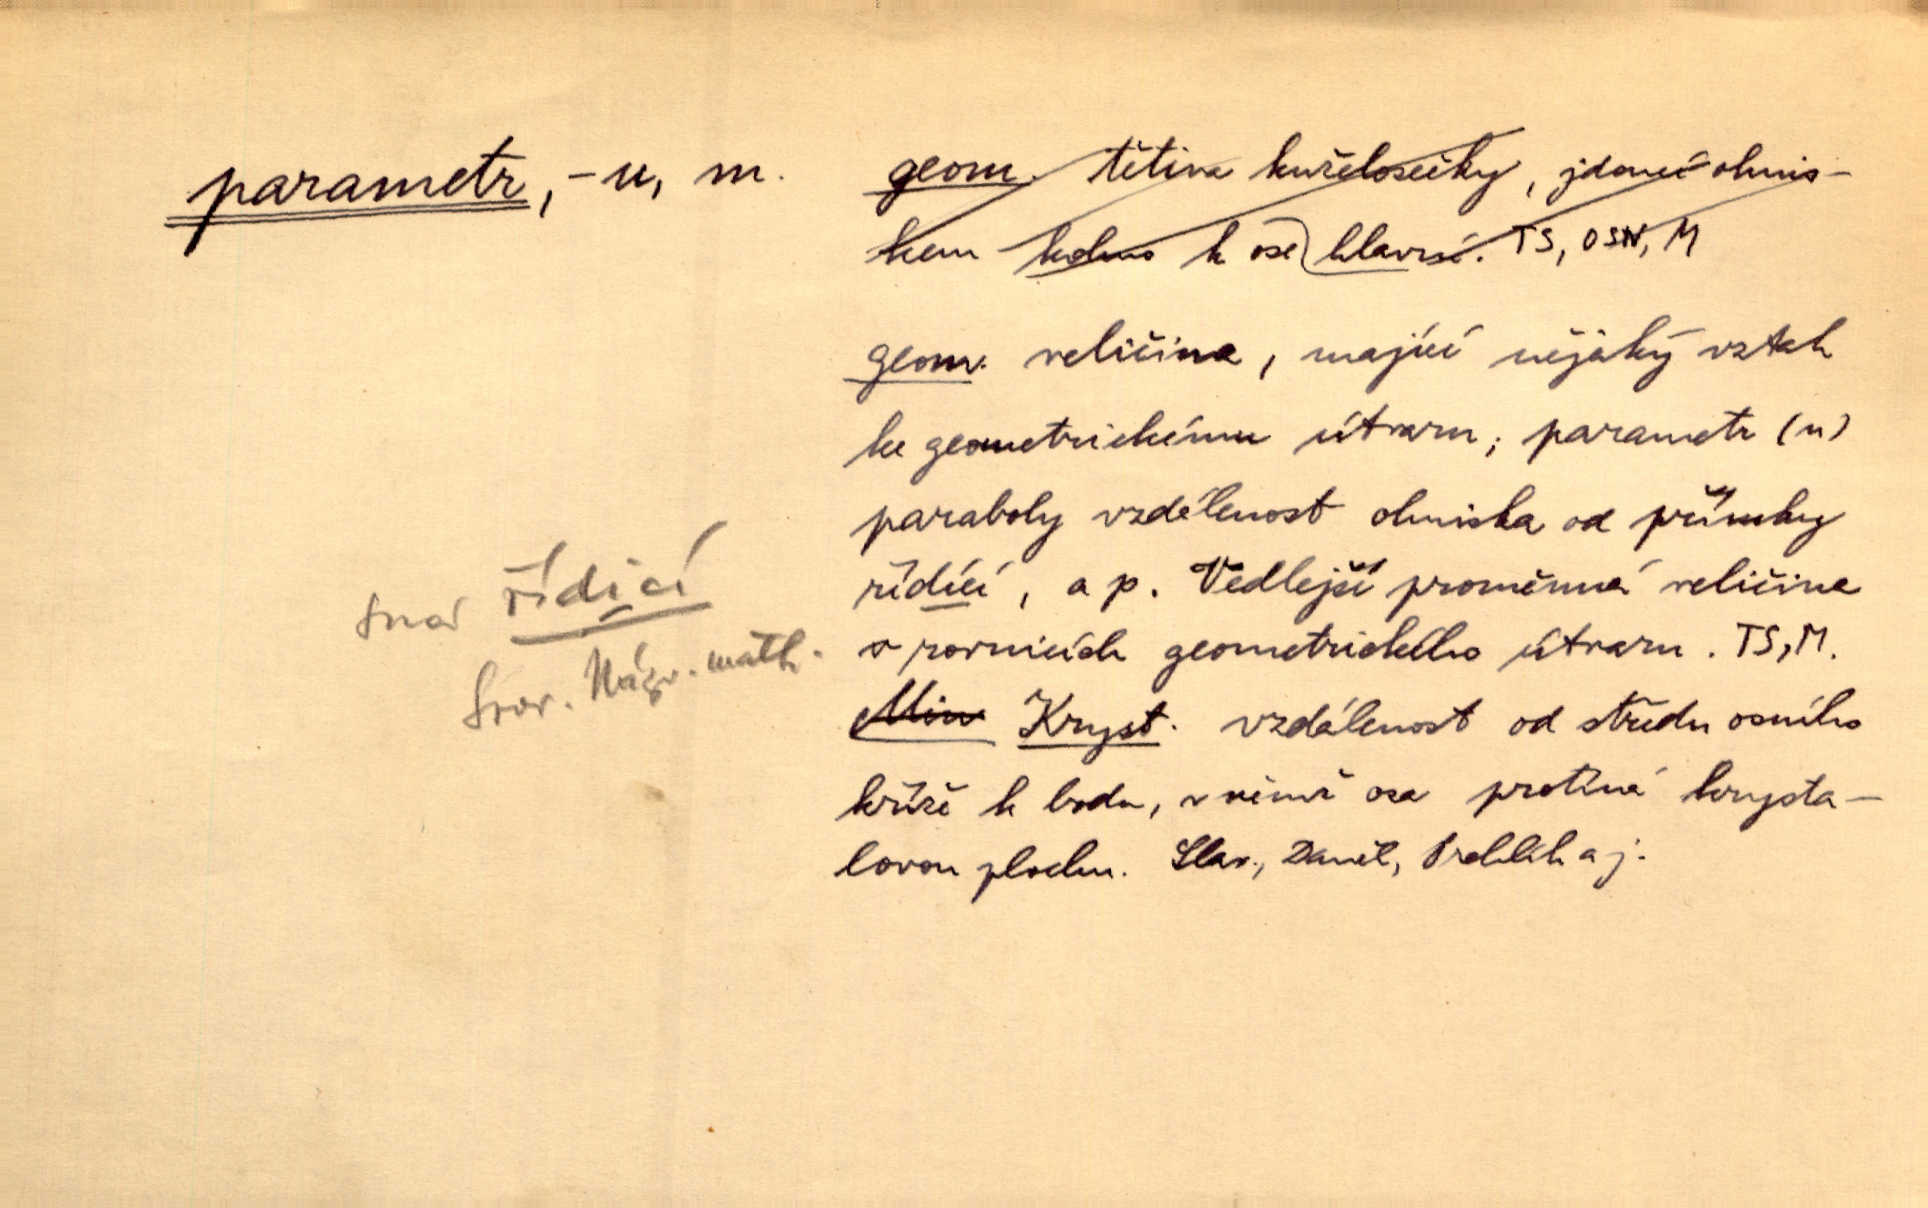 parametr, -u, m.
geom. tětiva kuželosečky, jdoucí ohnis-
kem kolmo k ose hlavní. TS, OSN, M
geom. veličina, mající nějaký vztah
ke geometrickému útvaru; parametr (u)
paraboly vzdálenost ohniska od přímky
řídící, a p. Vedlejší proměnná veličina
v rovnicích geometrického útvaru. TS, M.
Min Kryst. vzdálenost od středu osního
kříže k bodu, v němž osa protíná krysta-
lovou plochu. Slav., Daněk, a j.
řídicí
Srov. Názv. math.